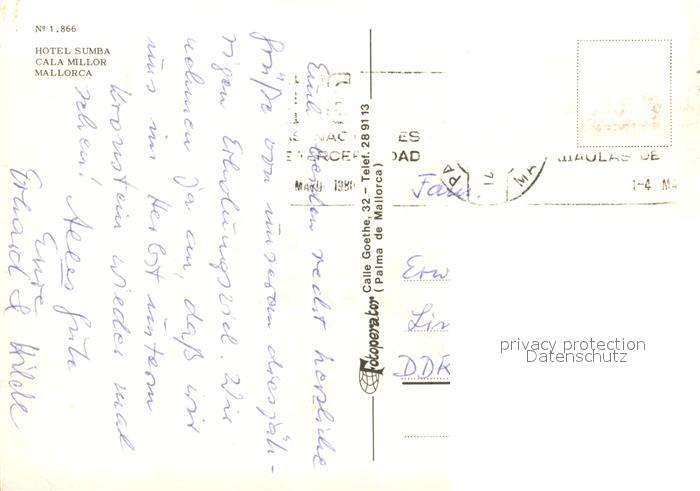 Nº 1.866
HOTEL SUMBA
CALA MILLOR
MALLORCA
Euch beiden recht herzliche
Grüße von unserem diesjäh-
rigen Erholungsziel. Wir
nehmen ja an, daß wir
uns im Herbst unterm
Kronstein wieder mal
sehen! Alles Gute
Eure
Erhard & Hilde
Fotoperator Calle Goethe, 32 - Telef. 28 91 13
(Palma de Mallorca)
ES
TERCER DAD
MAYO 198
PA MA
JAULAS DE
1-4 MA
Fam.
Erw
Lin
DDR
privacy protection
Datenschutz